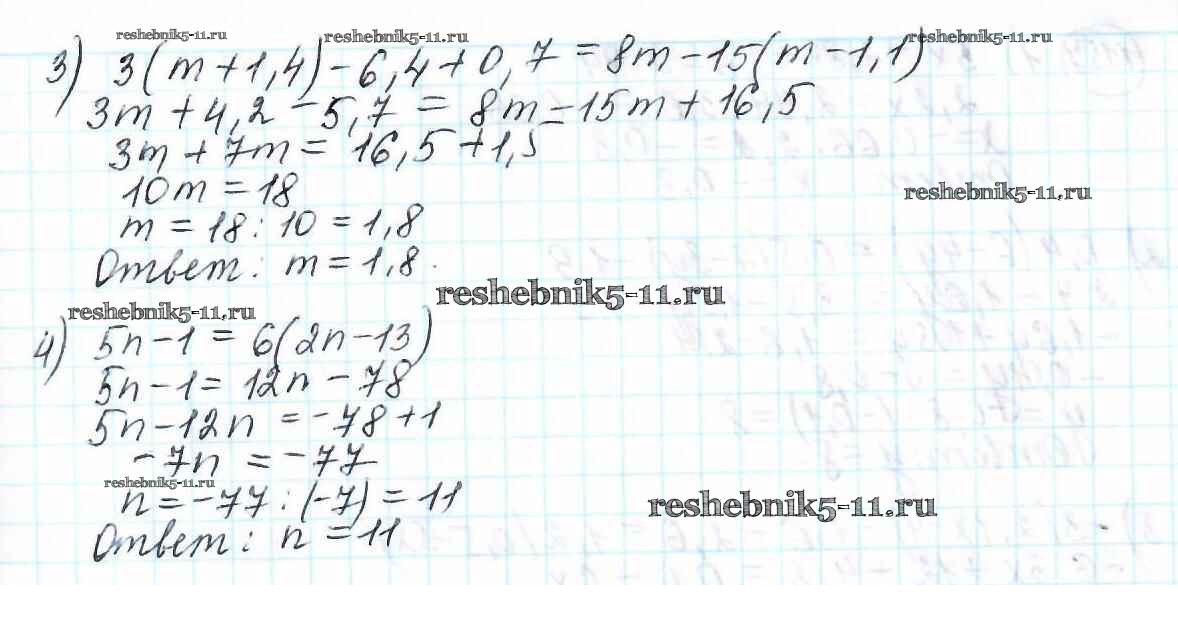 reshebnik5-11.ru reshebnik5-11.ru reshebnik5-11.ru
3) 3(m+1,4)-6,4+0,7=8m-15(m-1,1)
3m+4,2-5,7=8m-15m+16,5
3m+7m=16,5+1,5
10m=18
reshebnik5-11.ru
m=18:10=1,8
Ответ: m=1,8.
reshebnik5-11.ru
reshebnik5-11.ru
4) 5n-1=6(2n-13)
5n-1=12n-78
5n-12n=-78+1
-7n=-77
reshebnik5-11.ru
n=-77:(-7)=11
reshebnik5-11.ru
Ответ: n=11